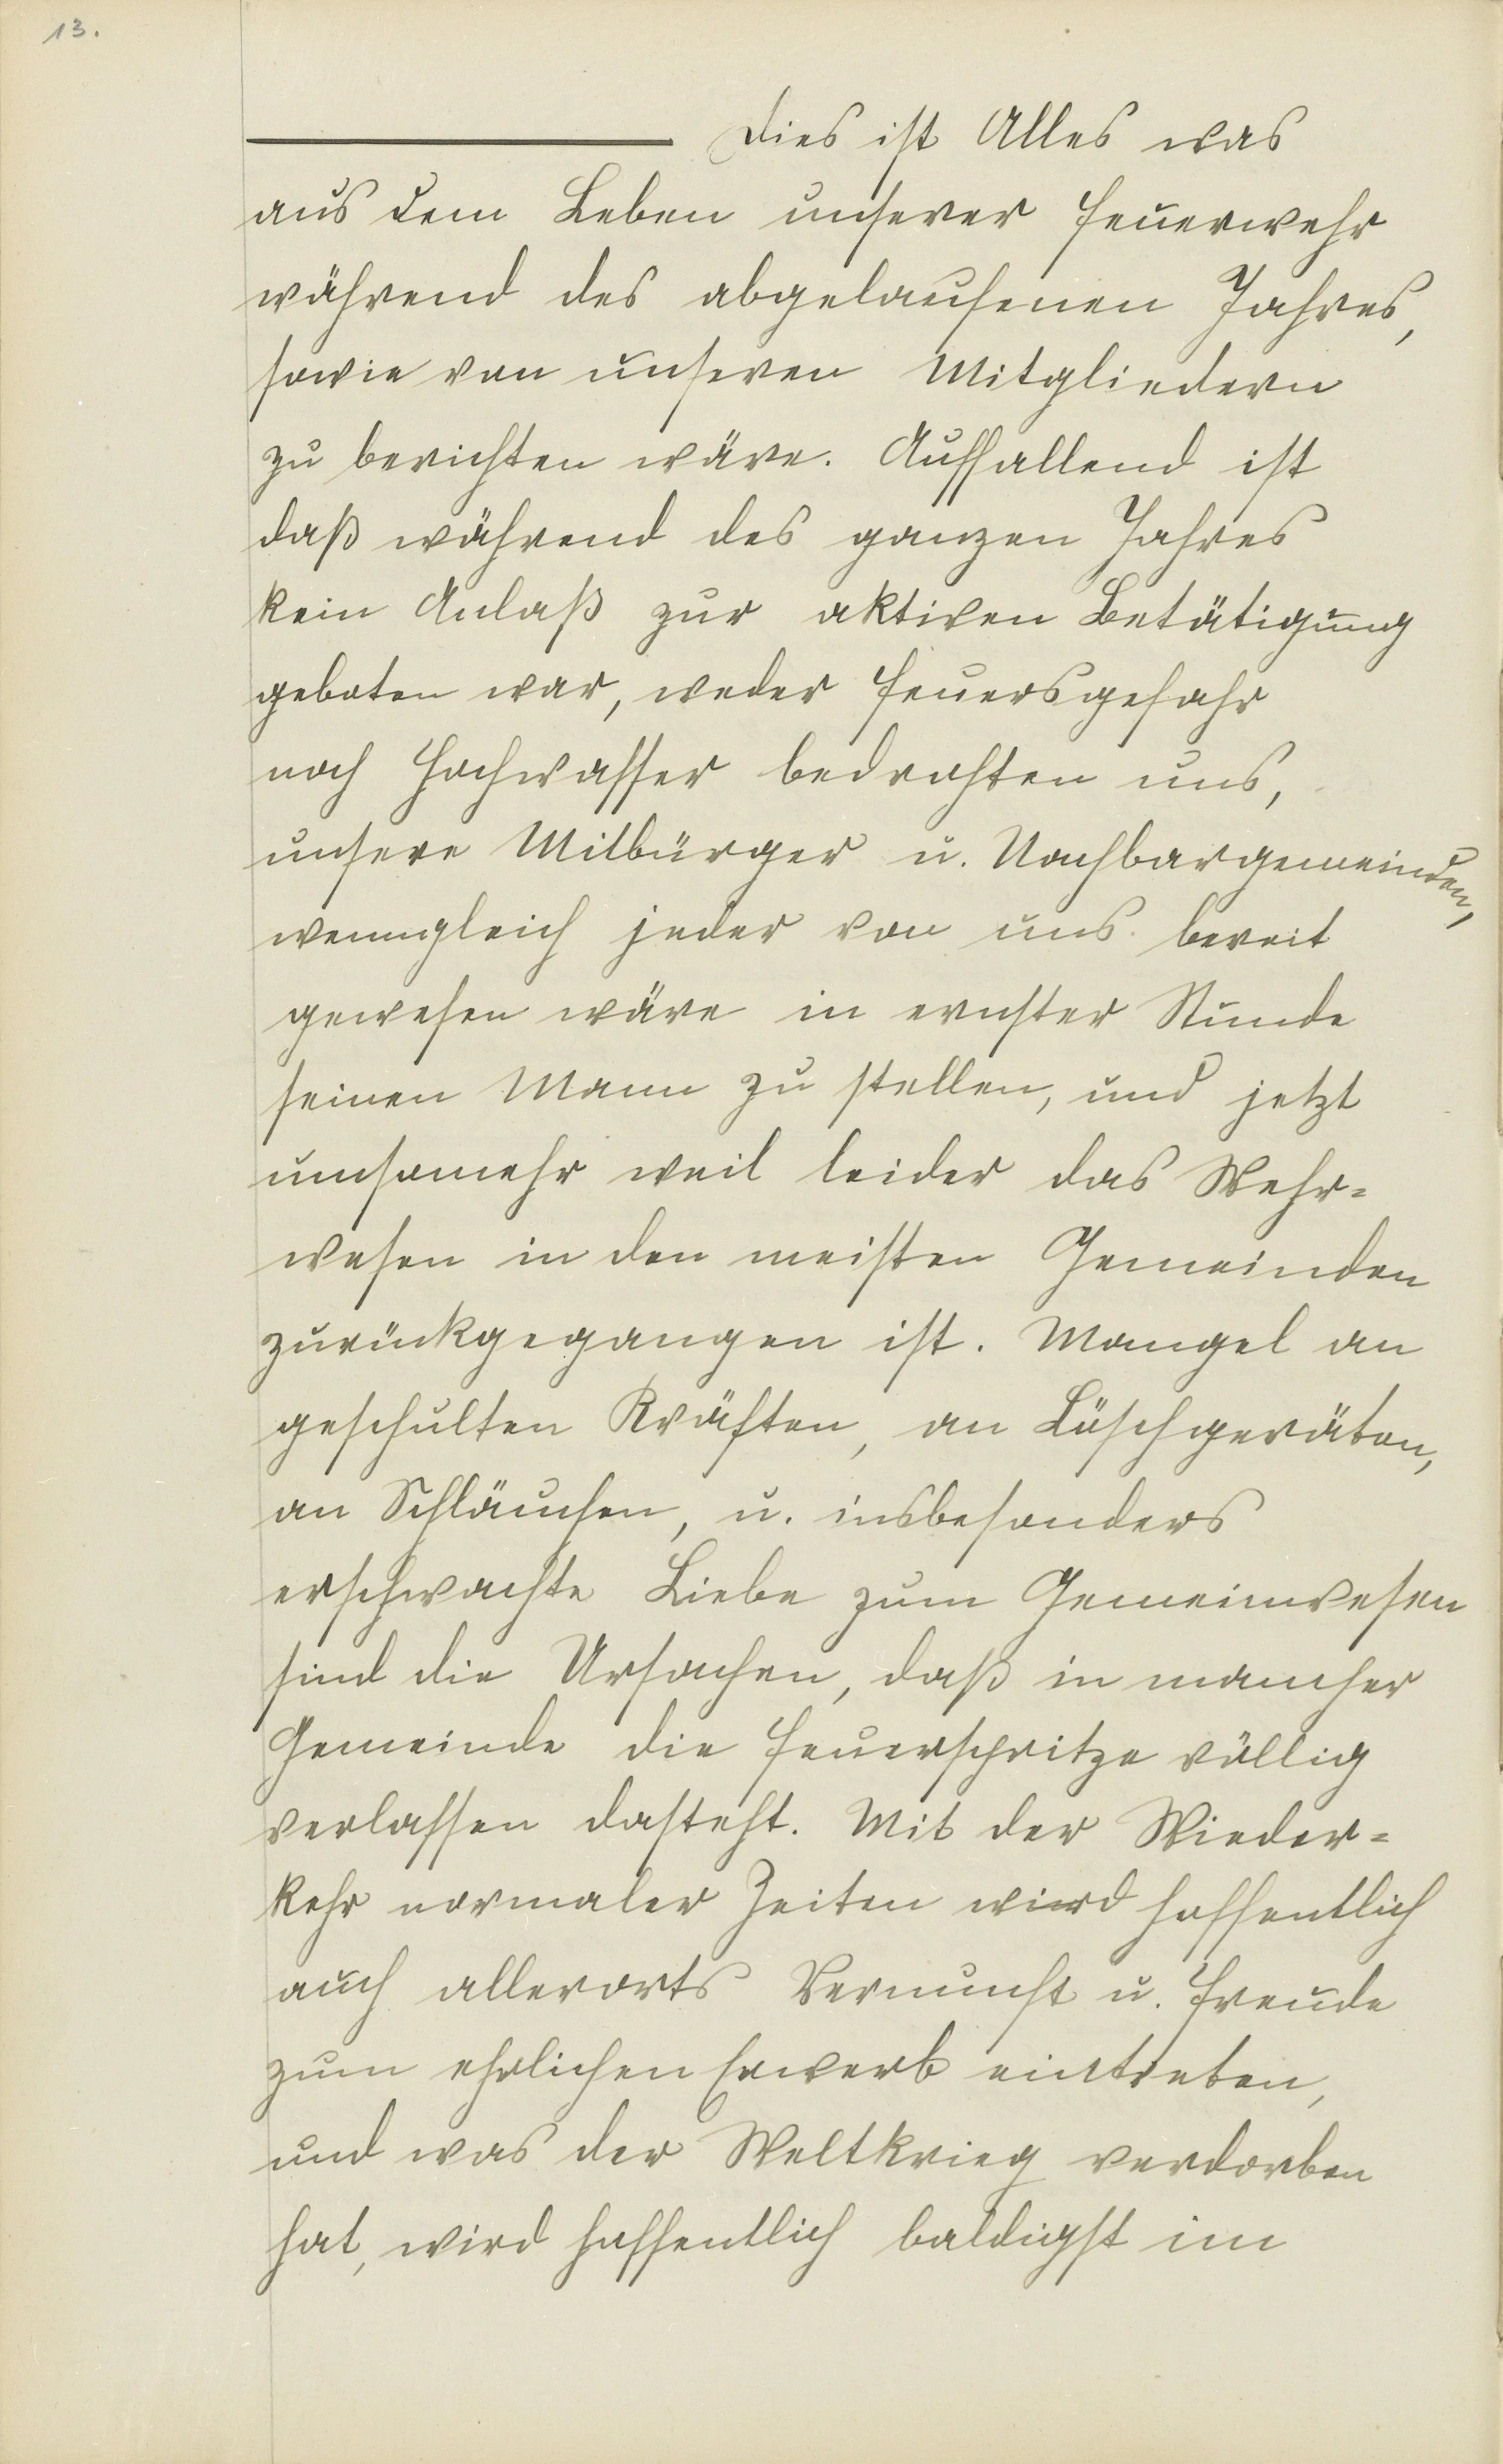 13.
Dies ist Alles was
aus dem Leben unserer Feuerwehr
während des abgelaufenen Jahres,
sowie von unseren Mitgliedern
zu berichten wäre. Auffallend ist
daß während des ganzen Jahres
kein Anlaß zur aktiven Betätigung
geboten war, weder Feuersgefahr
noch Hochwasser bedrohten uns,
unsere Mitbürger u. Nachbargemeinden,
wenngleich jeder von uns bereit
gewesen wäre in ernster Stunde
seinen Mann zu stellen, und jetzt
umsomehr weil leider das Wehr=
wesen in den meisten Gemeinden
zurückgegangen ist. Mangel an
geschulten Kräften, an Löschgeräten,
an Schläuchen, u. insbesonders
erschwachte Liebe zum Gemeinwesen
sind die Ursachen, daß in mancher
Gemeinde die Feuerspritze völlig
verlassen dasteht. Mit der Wieder=
kehr normaler Zeiten wird hoffentlich
auch allerorts Vernunft u. Freude
zum ehrlichen Erwerb eintreten,
und was der Weltkrieg verdorben
hat, wird hoffentlich baldigst im